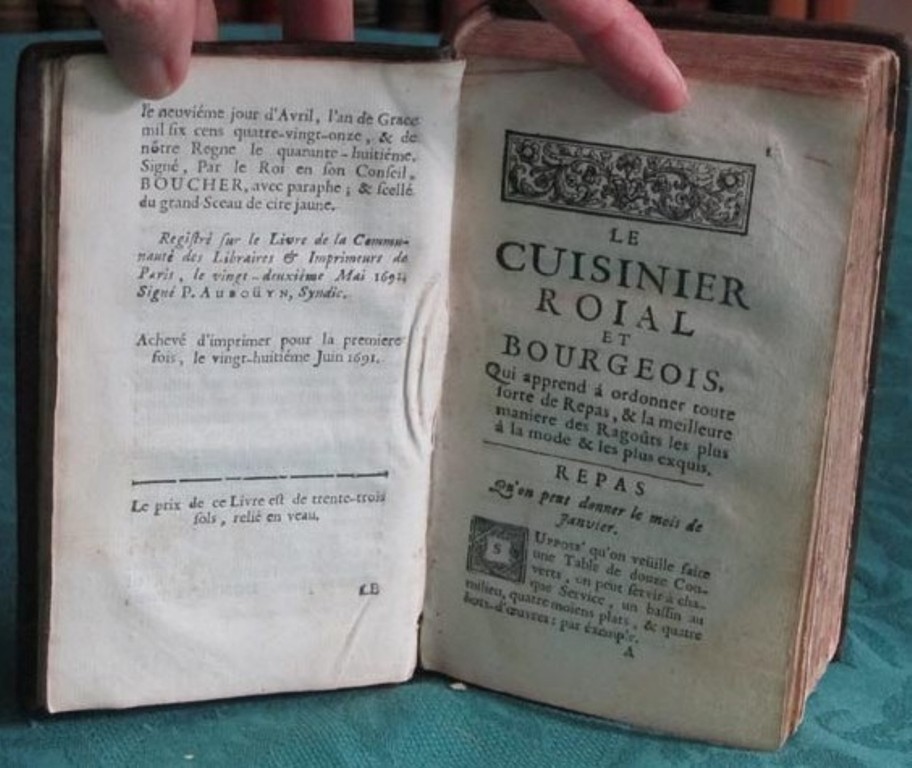 le neuviéme jour d'Avril, l'an de Grace
mil six cens quatre-vingt-onze, & de
nôtre Regne le quarante-huitiéme.
Signé, Par le Roi en son Conseil,
BOUCHER, avec paraphe ; & scellé
du grand Sceau de cire jaune.
Registré sur le Livre de la Commu-
nauté des Libraires & Imprimeurs de
Paris, le vingt-deuxiéme Mai 1691.
Signé P. AUBOÜYN, Syndic.
Achevé d'imprimer pour la premiere
fois, le vingt-huitiéme Juin 1691.
Le prix de ce Livre est de trente-trois
sols, relié en veau.
LE
LE
CUISINIER
ROIAL
ET
BOURGEOIS,
Qui apprend à ordonner toute
sorte de Repas, & la meilleure
maniere des Ragoûts les plus
à la mode & les plus exquis.
REPAS
Qu'on peut donner le mois de
Janvier.
SUPPOSE' qu'on veüille faire
une Table de douze Cou-
verts, on peut servir à cha-
que Service, un bassin au
milieu, quatre moiens plats, & quatre
hors-d'œuvres : par éxemple.
A